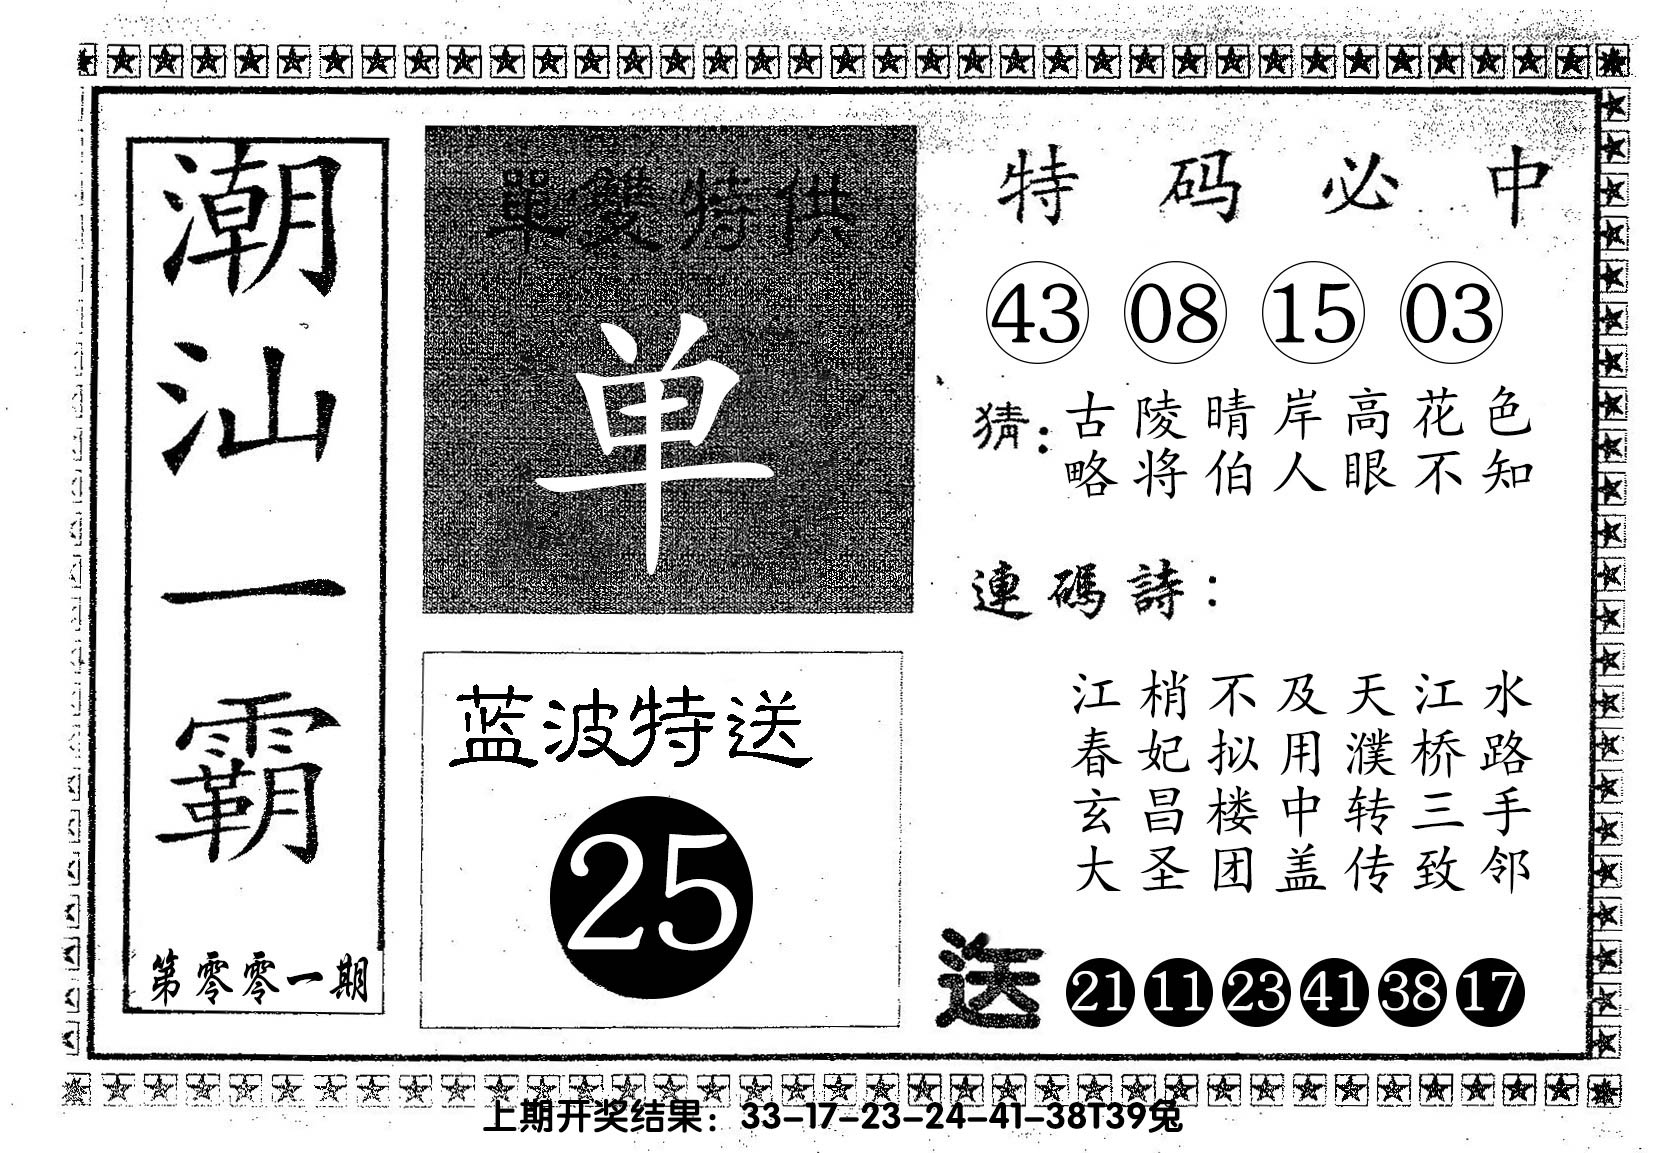 潮汕一霸
第零零一期
單雙特供
单
蓝波特送
25
特码必中
43 08 15 03
猜：古陵晴岸高花色
略将伯人眼不知
連碼詩：
江梢不及天江水
春妃拟用濮桥路
玄昌楼中转三手
大圣团盖传致邻
送 21 11 23 41 38 17
上期开奖结果：33-17-23-24-41-38T39兔